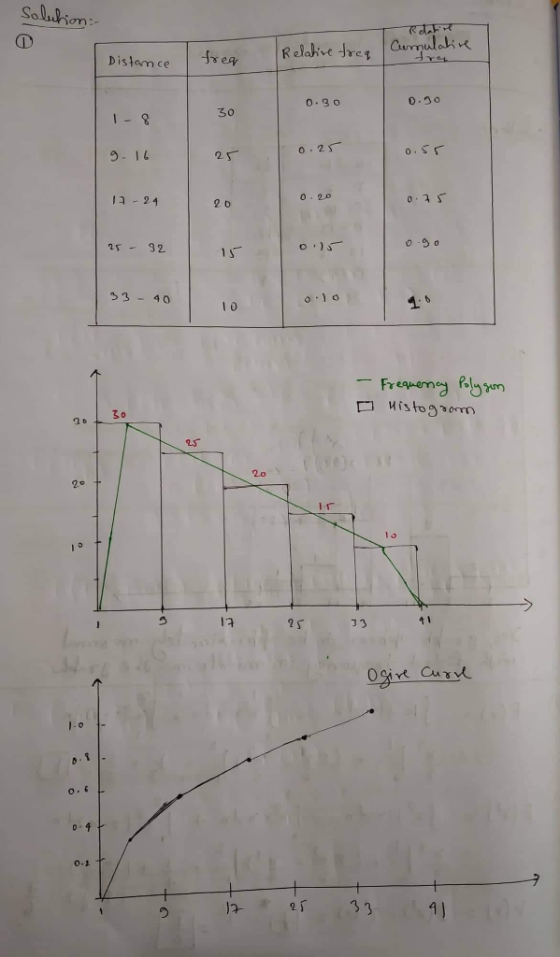 Solution:-
①
Distance freq Relative freq Relative Cumulative freq
1 - 8 30 0.30 0.30
9 - 16 25 0.25 0.55
17 - 24 20 0.20 0.75
25 - 32 15 0.15 0.90
33 - 40 10 0.10 1.0
— Frequency Polygon
Histogram
30 30
25
20 20
15
10 10
1 9 17 25 33 41
Ogive Curve
1.0
0.8
0.6
0.4
0.2
1 9 17 25 33 41